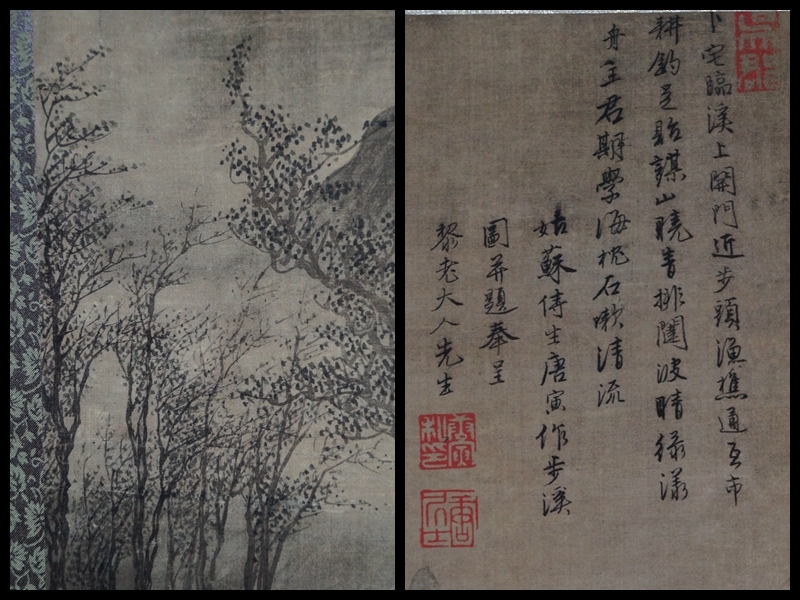 卜宅臨溪上開門近步頭漁樵通互市
耕釣足貽謀山曉青排闥波晴綠漾
舟主君期學海枕石嗽清流
姑蘇侍生唐寅作步溪
圖并題奉呈
黎老大人先生
唐寅私印
唐居士